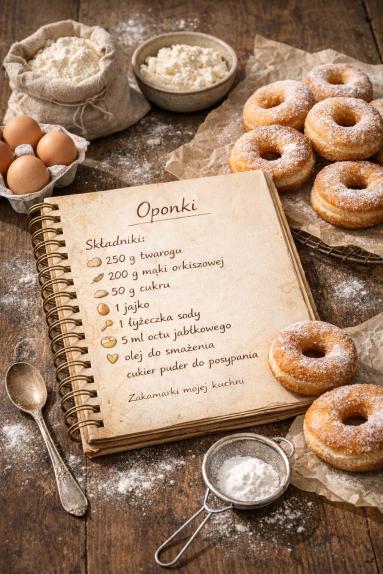 Oponki
Składniki:
250 g twarogu
200 g mąki orkiszowej
50 g cukru
1 jajko
1 łyżeczka sody
5 ml octu jabłkowego
olej do smażenia
cukier puder do posypania
Zakamarki mojej kuchni